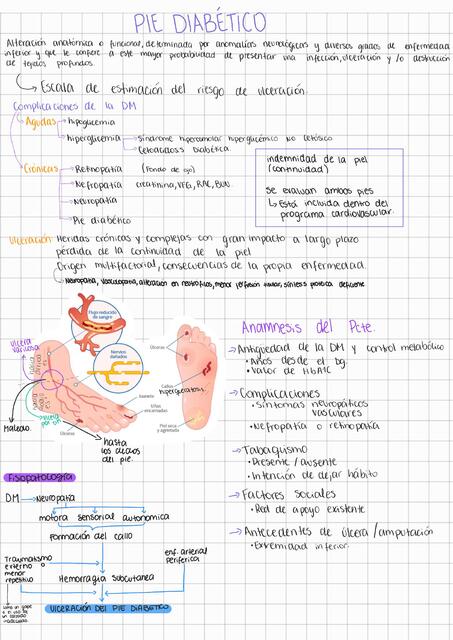 PIE DIABÉTICO
Alteración anatómica o funcional, determinada por anomalías neurológicas y diversos grados de enfermedad
inferior y que le confiere a este mayor probabilidad de presentar una infección, ulceración y /o destrucción
de tejidos profundos.
Escala de estimación del riesgo de ulceración.
Complicaciones de la DM
Agudas
hipoglicemia
hiperglicemia
síndrome hiperosmolar hiperglicémico no cetósico
Cetoacidosis Diabética.
Crónicas
Retinopatía (Fondo de ojo)
Nefropatía creatinina, VFG, RAC, BUN.
Neuropatía
Pie diabético
indemnidad de la piel
(continuidad)
se evalúan ambos pies
Está incluida dentro del
programa cardiovascular.
Ulceración: Heridas crónicas y complejas con gran impacto a largo plazo
pérdida de la continuidad de la piel
Origen multifactorial, consecuencias de la propia enfermedad.
Neuropatía, vasculopatía, alteración en neutrófilos, menor perfusión tisular, síntesis proteica deficiente
Flujo reducido
de sangre
Nervios
dañados
Úlcera
varicosa
Maleolo
Úlceras
hasta
los dedos
del pie.
Juanete
Uñas
encarnadas
Úlceras
Callos
hiperqueratosis.
Piel seca
y agrietada
Anamnesis del Pcte.
Antiguedad de la DM y control metabólico
• Años desde el
• Valor de HbA1C
Complicaciones
• Síntomas neuropáticos
vasculares
• Nefropatía o retinopatía
Tabaquismo
• Presente / ausente
• Intención de dejar hábito
Factores sociales
• Red de apoyo existente
Antecedentes de úlcera / amputación
• Extremidad inferior.
Fisiopatología
DM → Neuropatía
motora sensorial autonomica
Formación del callo
Traumatismo
externo o
menor
repetitivo
Hemorragia subcutanea
enf. arterial
periferica
ULCERACIÓN DEL PIE DIABÉTICO